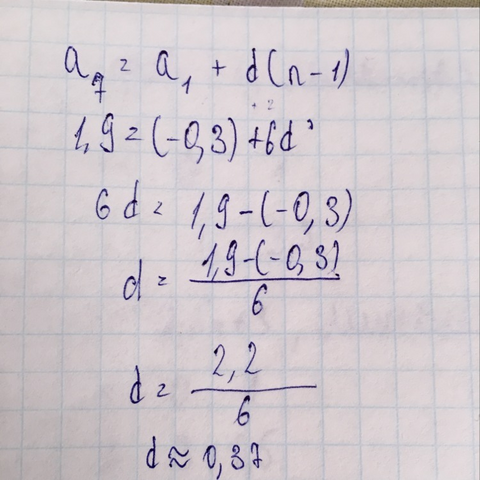 a₇ = a₁ + d(n-1)
1,9 = (-0,3) + 6d
6d = 1,9 - (-0,3)
d = 1,9-(-0,3)
6
d = 2,2
6
d ≈ 0,37